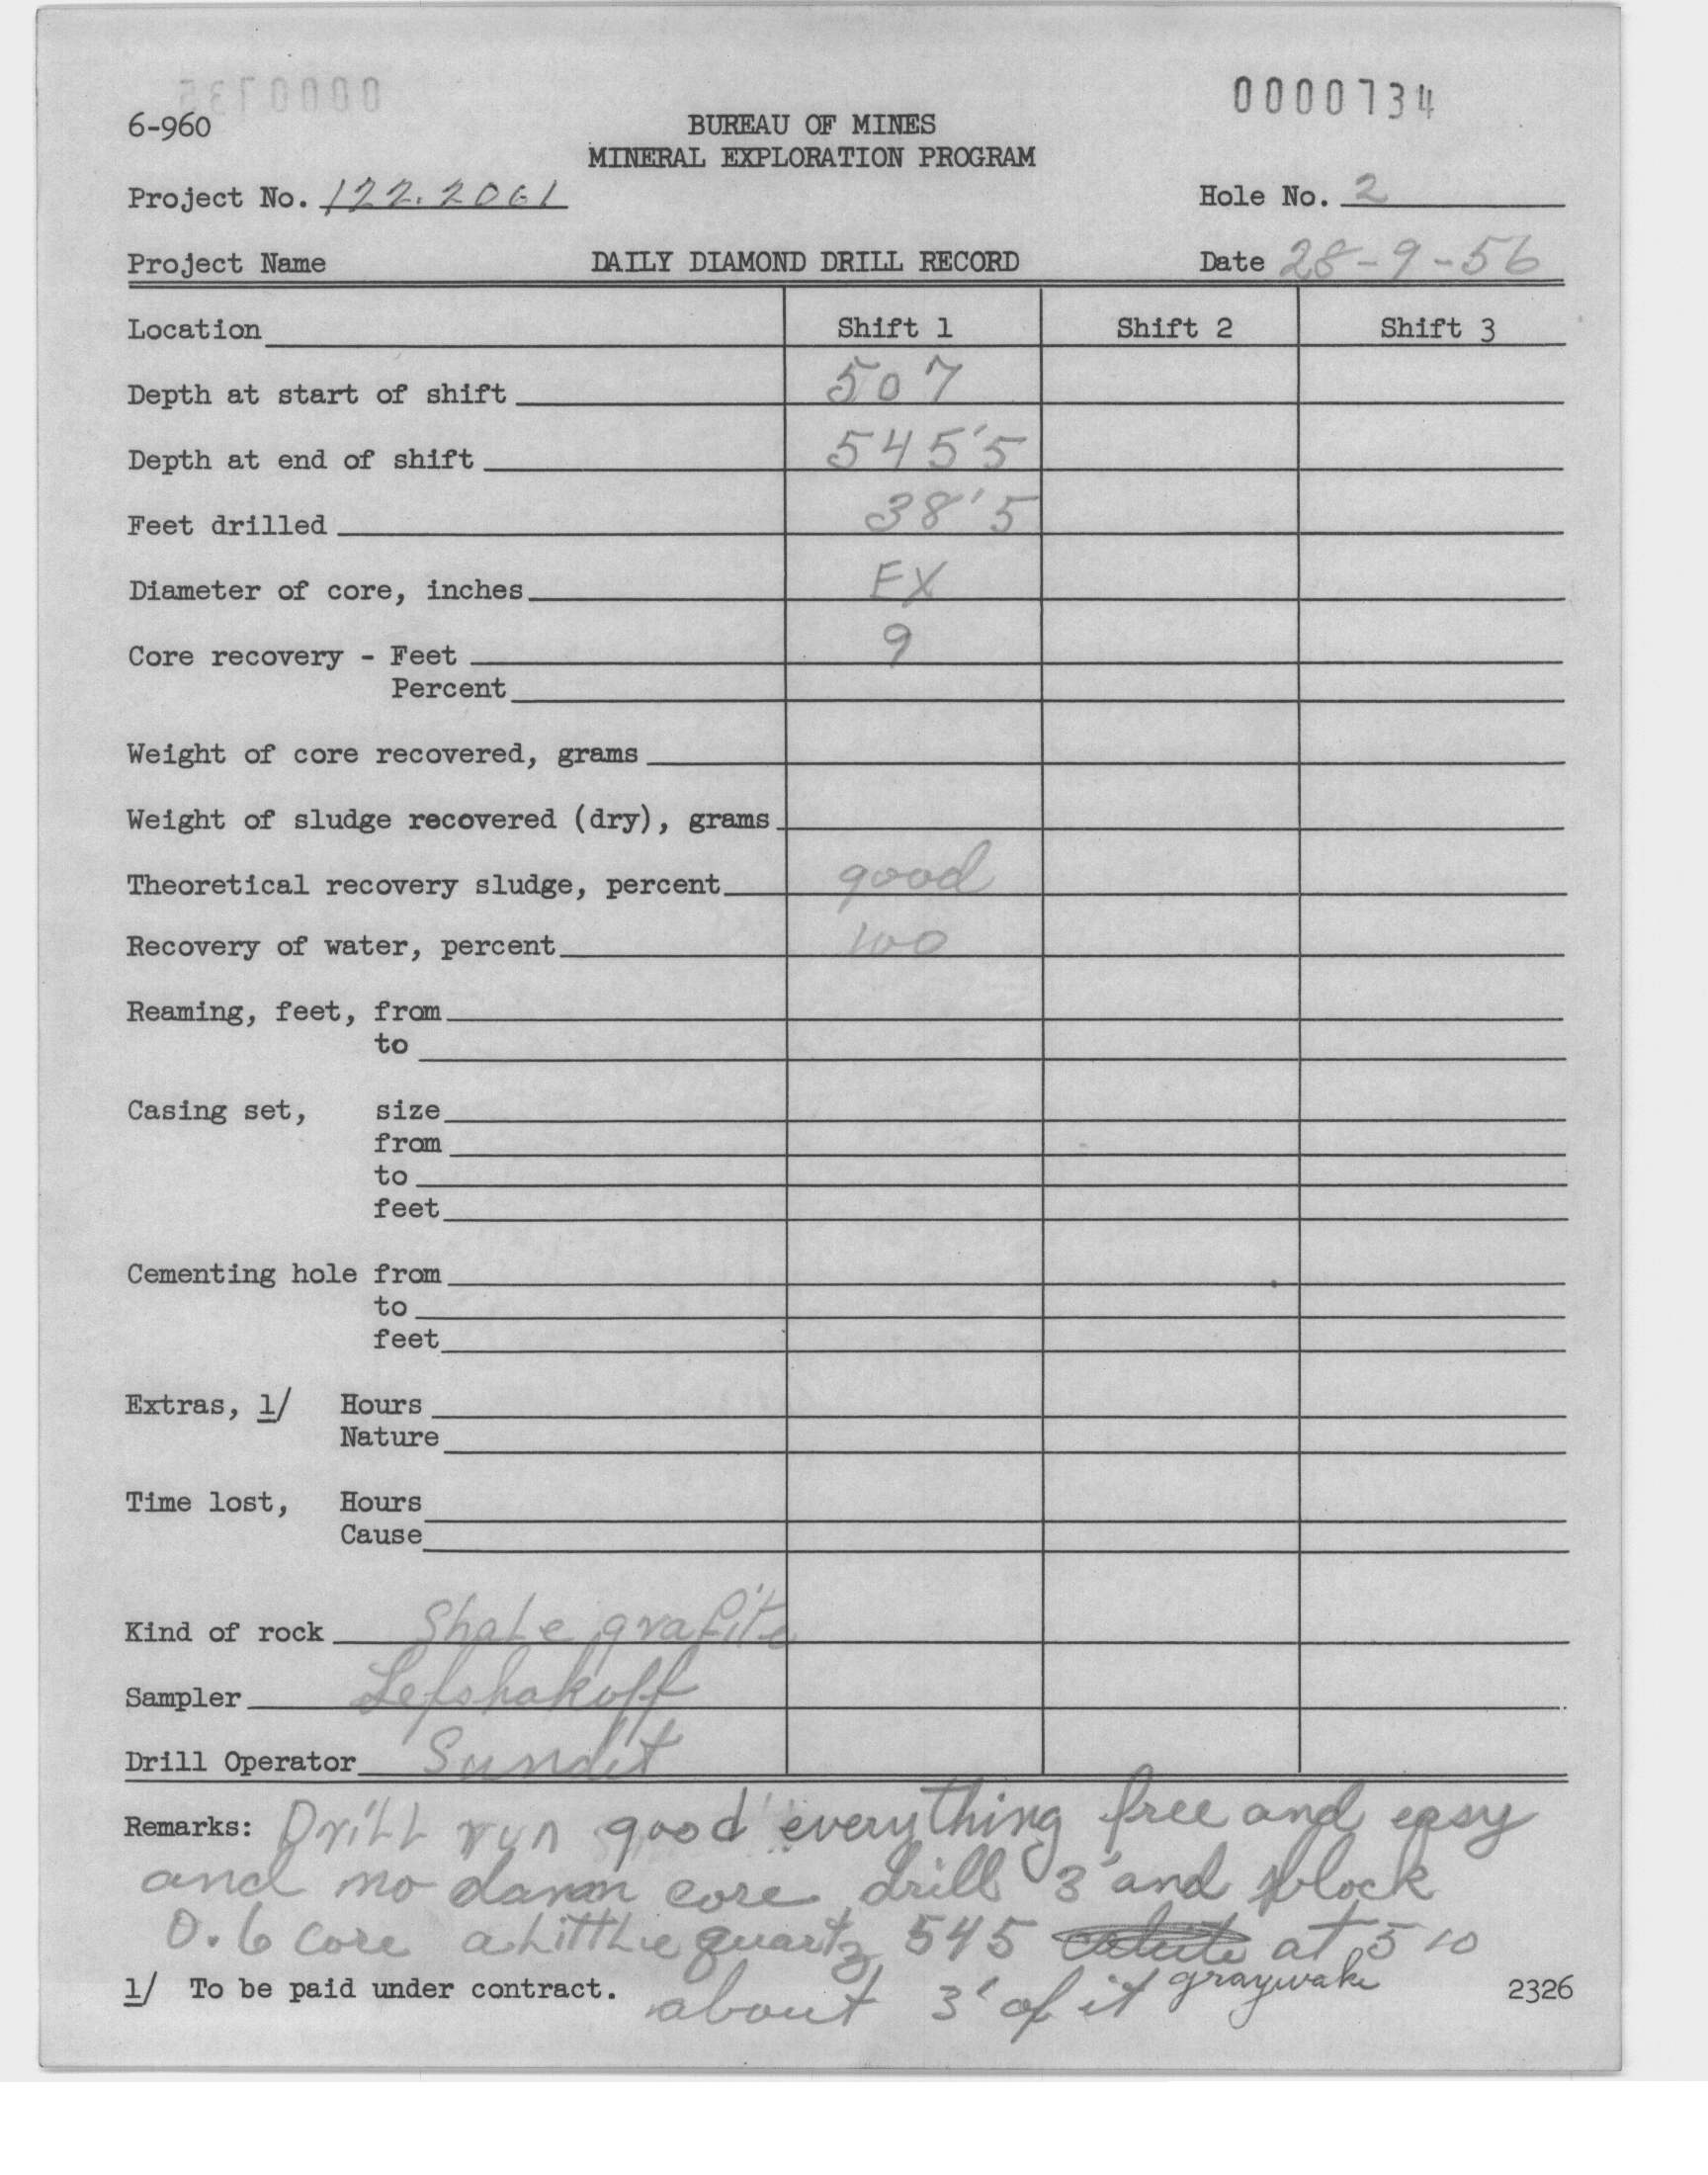 0000734
6-960
BUREAU OF MINES
MINERAL EXPLORATION PROGRAM
Project No. 122.2061
Hole No. 2
Project Name
DAILY DIAMOND DRILL RECORD
Date 28-9-56
Location Shift 1 Shift 2 Shift 3
Depth at start of shift 507
Depth at end of shift 545'5
Feet drilled 38'5
Diameter of core, inches EX
Core recovery - Feet 9
Percent
Weight of core recovered, grams
Weight of sludge recovered (dry), grams
Theoretical recovery sludge, percent good
Recovery of water, percent 100
Reaming, feet, from
to
Casing set, size
from
to
feet
Cementing hole from
to
feet
Extras, 1/ Hours
Nature
Time lost, Hours
Cause
Kind of rock Shale grafite
Sampler Lefshakoff
Drill Operator
Remarks: Drill run good everything free and easy
and no damn core drill 3' and block
0.6 core a little quartz 545 at 510
about 3' of it graywake
1/ To be paid under contract.
2326